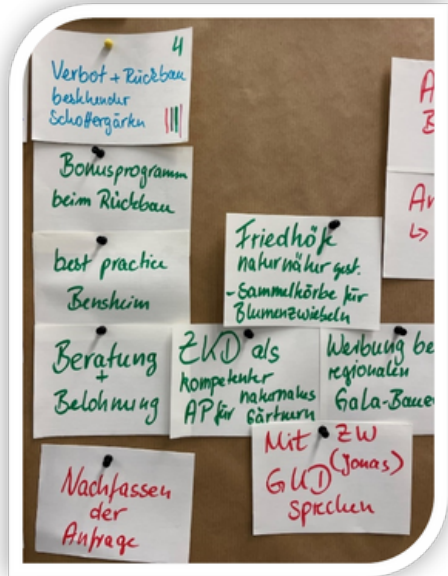 4
Verbot + Rückbau
bestehender
Schottergärten
Bonusprogramm
beim Rückbau
best practice
Bensheim
Beratung
+
Belohnung
Nachfassen
der
Anfrage
Friedhöfe
naturnäher gest.
- Sammelkörbe für
Blumenzwiebeln
ZKD als
kompetenter
AP für naturnahes
Gärtnern
Werbung be
regionalen
GaLa-Baue
Mit ZW
GKD (Jonas)
sprechen
A
Ar
↳